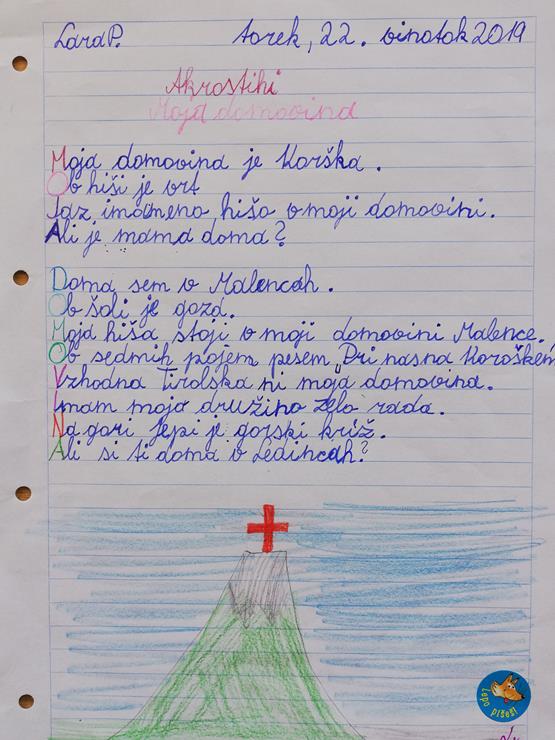 Lara P. torek, 22. vinotok 2019
Akrostihi
Moja domovina
Moja domovina je Korška.
Ob hiši je vrt
Jaz imam eno hišo v moji domovini.
Ali je mama doma?
Doma sem v Malencah.
Ob šoli je gozd.
Moja hiša stoji v moji domovini Malence.
Ob sedmih pojem pesem "Pri nas na Koroškem
Vzhodna Tirolska ni moja domovina.
Imam mojo družino zelo rada.
Na gori Jepi je gorski križ.
Ali si ti doma v Ledincah?
Lepo pišeš!